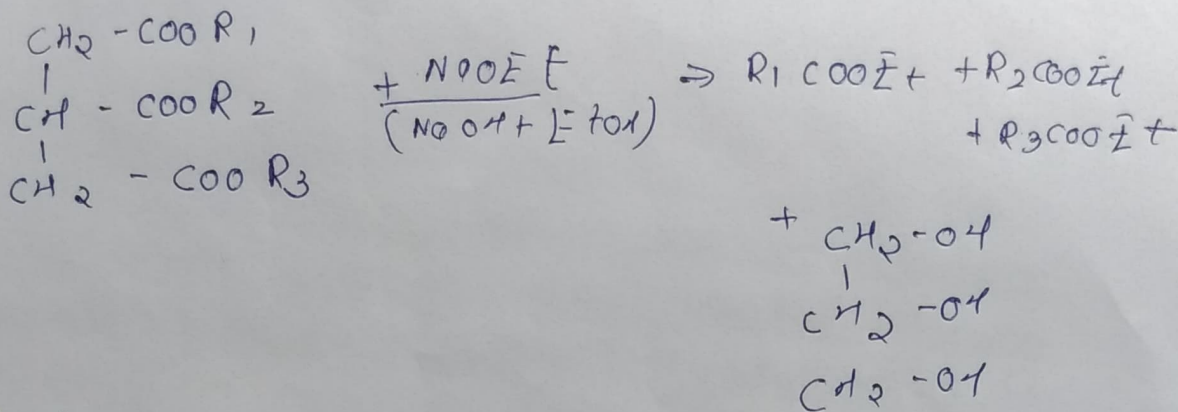 CH2 - COO R1
CH - COOR2
CH2 - COO R3
+ NaOEt
(NaOH + EtOH)
⇒ R1 COOEt + R2COOEt
+ R3COOEt
+ CH2-OH
CH2-OH
CH2-OH